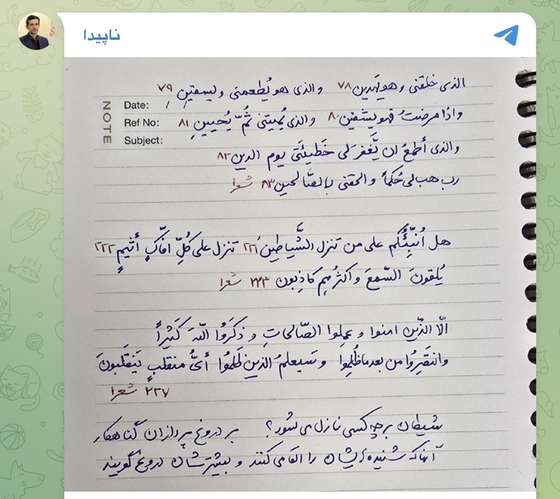 ناپیدا
الذی خلقنی و هو یهدین ۷۸ والذی هو یُطعمنی و یسقینِ ۷۹
NOTE
Date: /
Ref No:
Subject:
و اذا مرضتُ فهو یشفین ۸۰ والذی یُمیتنی ثُمّ یُحیینِ ۸۱
والذی أطمعُ ان یَّغفر لی خَطیئتی یوم الدین ۸۲
رب هب لی حُکماً و الحقنی بالصّالحین ۸۳ شعرا
هل اُنبِّئُکُم علی من تنزل الشَّیاطین ۲۲۱ تنزل علی کُلِّ افّاکٍ أثیمٍ ۲۲۲
یُلقونَ السَّمعَ و اکثرُهم کاذِبون ۲۲۳ شعرا
الّا الذّین امنوا و عمِلوا الصّالحاتِ و ذَکَرُوا اللّهَ کَثیراً
وانتَصِرُوا من بعدِ ما ظُلِموا و سَیعلمُ الذین ظَلَموا أیَّ منقلبٍ یَنقَلِبونَ
۲۲۷ شعرا
شیطان بر چه کسی نازل می شود؟ بر دروغ پردازان گناهکار
آنها که شنیده‌هایشان را القا می کنند و بیشترشان دروغ گویند